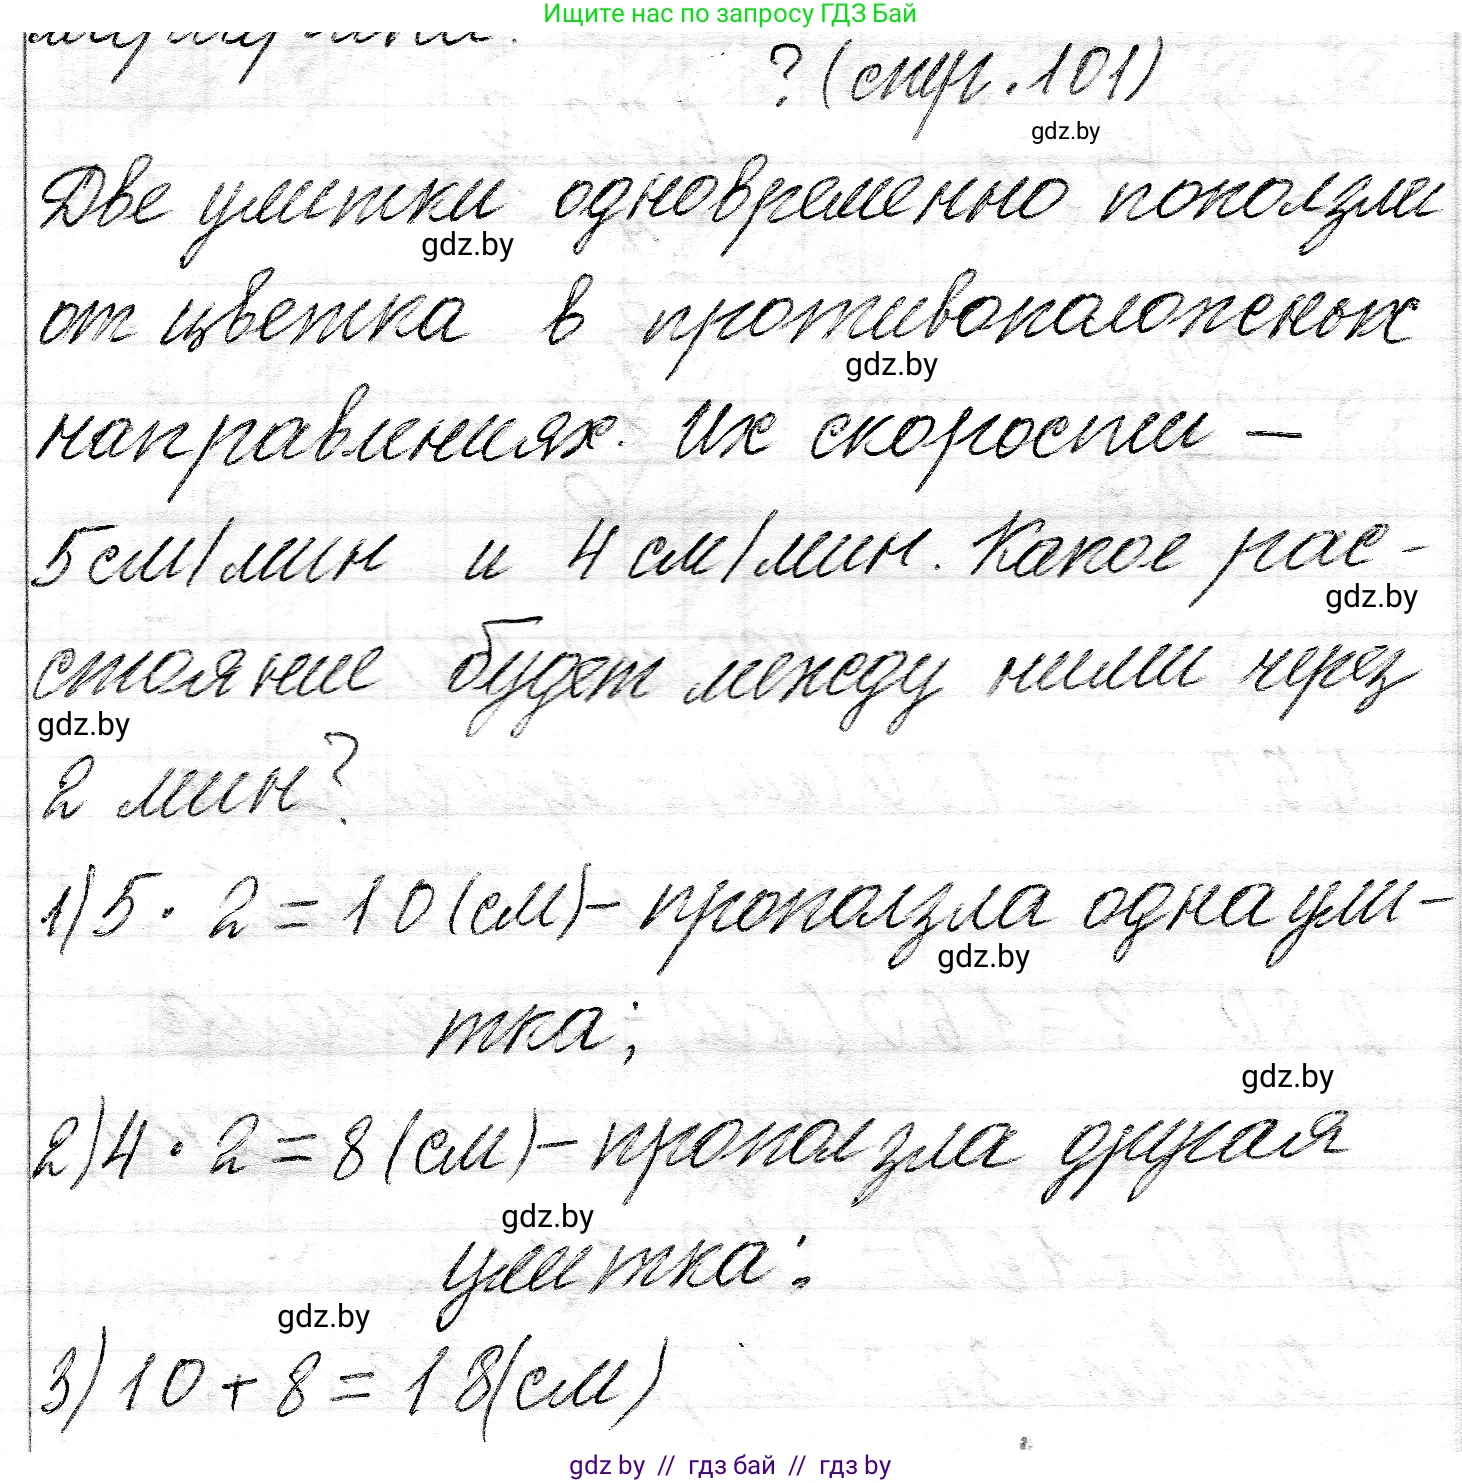 Ищите нас по запросу ГДЗ Бай
? (стр. 101)
gdz.by
Две улитки одновременно поползли
gdz.by
от цветка в противоположных
gdz.by
направлениях. Их скорости —
5 см/мин и 4 см/мин. Какое рас-
gdz.by
стояние будет между ними через
gdz.by
2 мин?
1) 5 · 2 = 10 (см) – проползла одна ули-
gdz.by
тка;
gdz.by
2) 4 · 2 = 8 (см) – проползла другая
gdz.by
улитка;
gdz.by
3) 10 + 8 = 18 (см)
gdz.by // гдз бай // гдз by